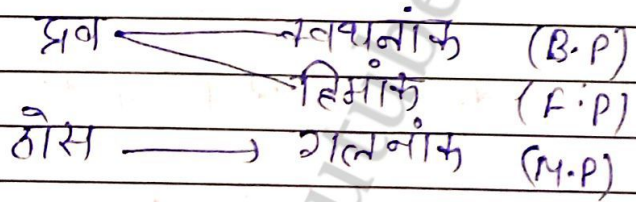 द्रव क्वथनांक (B.P)
हिमांक (F.P)
ठोस → गलनांक (M.P)